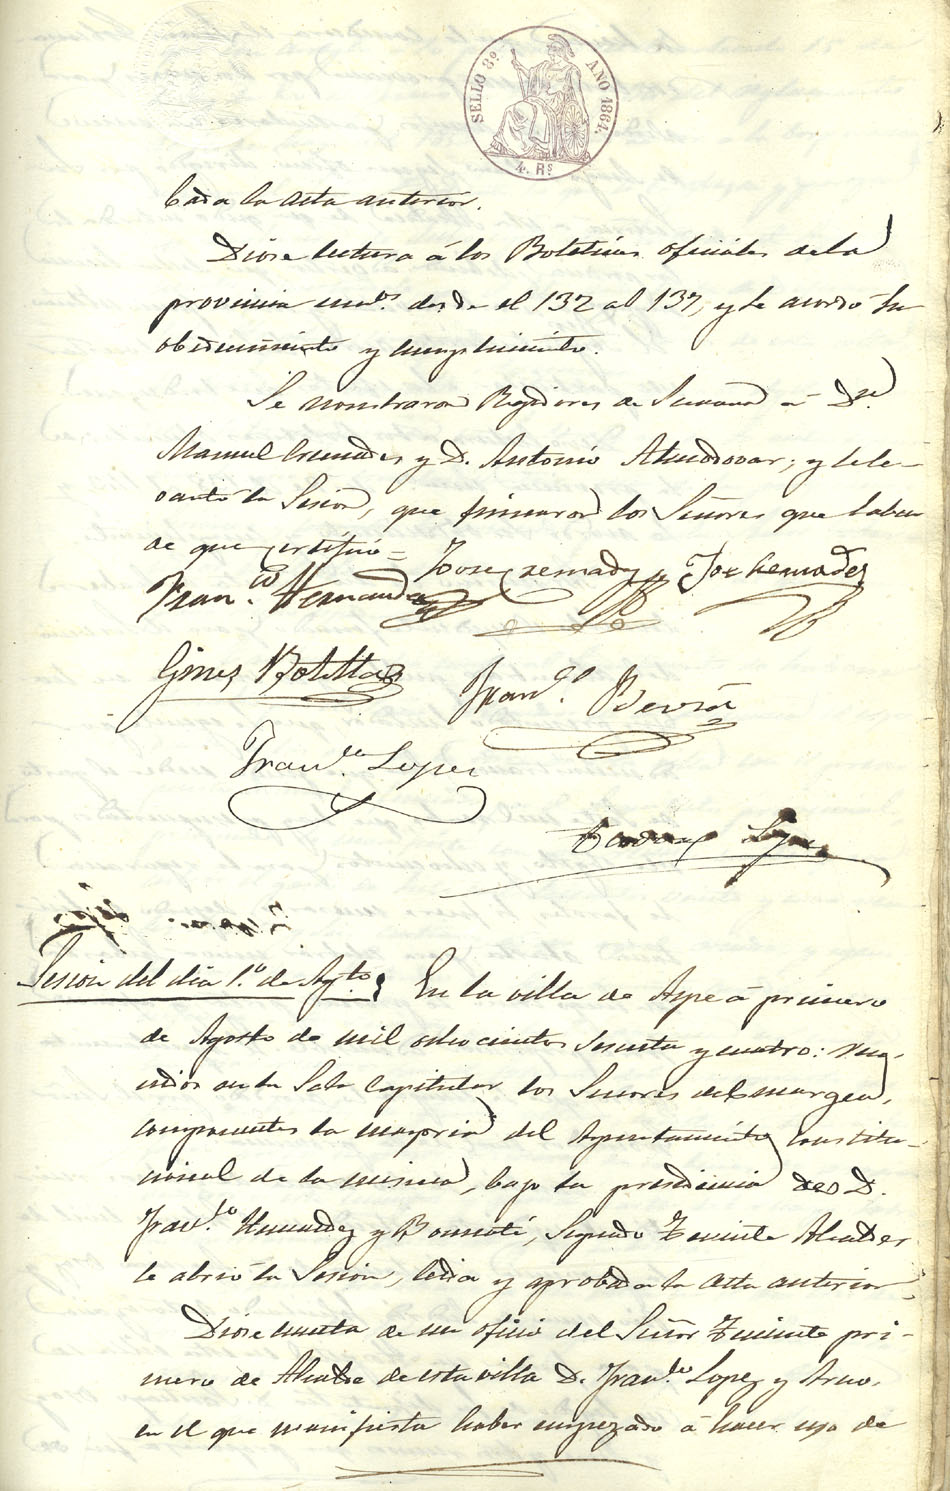 SELLO 8º AÑO 1864.
4. Rs
bada la acta anterior.
Diose lectura á los Boletines oficiales de la
provincia numˢ. desde el 132 al 137, y se acordó su
obedecimiento y cumplimiento.
Se nombraron Regidores de Semana á Dⁿ.
Manuel Cremades y D. Antonio Almodovar; y se le-
vantó la Sesion, que firmaron los Señores que saben
de que certifico = Jose Cremades Jose Cremades
Franᶜᵒ. Hernandez
Gines Botella
Franᶜᵒ. Berná
Franᶜᵒ. Lopez
Lopez
Sesion del dia 1.º de Agᵗᵒ. En la villa de Aspe á primero
de Agosto de mil ochocientos sesenta y cuatro: reu-
nidos en la Sala Capitular los Señores del margen,
componentes la mayoria del Ayuntamiento constitu-
cional de la misma, bajo la presidencia de D.
Franᶜᵒ. Hernandez y Segundo Teniente Alcalde,
se abrió la Sesion, leida y aprobada la acta anterior.
Diose cuenta de un oficio del Señor Teniente pri-
mero de Alcalde de esta villa D. Franᶜᵒ. Lopez y
en el que manifiesta haber empezado á hacer uso de